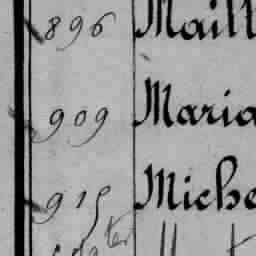 896 Maill
909 Maria
915 Miche